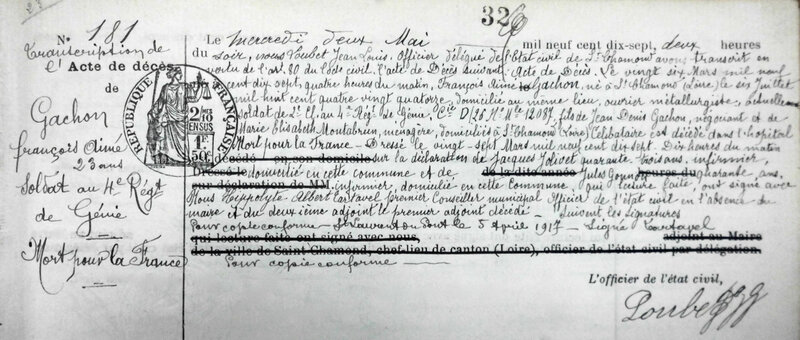 32
N° 181
transcription de
l'Acte de décès
de
Gachon
françois Aimé
23 ans
Soldat au 4e Régt
de Génie
Mort pour la France
RÉPUBLIQUE FRANÇAISE
2 10mes
EN SUS
1F
50c
Le Mercredi deux Mai mil neuf cent dix-sept, deux heures
du soir, nous Loubet Jean Louis, Officier délégué de l'Etat civil de St Chamond avons transcrit en
vertu de l'art. 80 du Code civil, l'acte de Décès suivant: Acte de Décès. Le vingt six Mars mil neuf
cent dix sept, quatre heures du matin, François Aimé Gachon, né à St Chamond (Loire) le six Juillet
mil huit cent quatre vingt quatorze, domicilié au même lieu, ouvrier métallurgiste, actuellement
soldat de 2e Cl. au 4e Rég. de Génie, Cie D/26, Mle 12087, fils de Jean Denis Gachon, négociant et de
Marie Elisabeth Montabrun, ménagère, domiciliés à St Chamond (Loire) Célibataire est décédé dans l'hôpital
Mort pour la France - Dressé le vingt-sept Mars mil neuf cent dix sept. Dix heures du matin
décédé en son domicile sur la déclaration de Jacques Jolivet quarante trois ans, infirmier,
domicilié en cette commune et de de la dite année Jules Gonn heures du quarante ans,
sur déclaration de MM infirmier, domicilié en cette commune, qui lecture faite, ont signé avec
Nous Hippolyte Albert Cartavel premier Conseiller municipal Officier de l'état civil en l'absence du
maire et du deuxième adjoint le premier adjoint décédé - Suivent les signatures
Pour copie conforme - St Laurent du Pont le 5 Avril 1917 - Signé Cartavel
qui lecture faite ont signé avec nous, adjoint au Maire
de la ville de Saint Chamond, chef-lieu de canton (Loire), officier de l'état civil par délégation.
Pour copie conforme
L'officier de l'état civil,